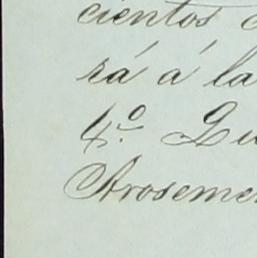 cientos
rá á la
4º. Qu
Aroseme